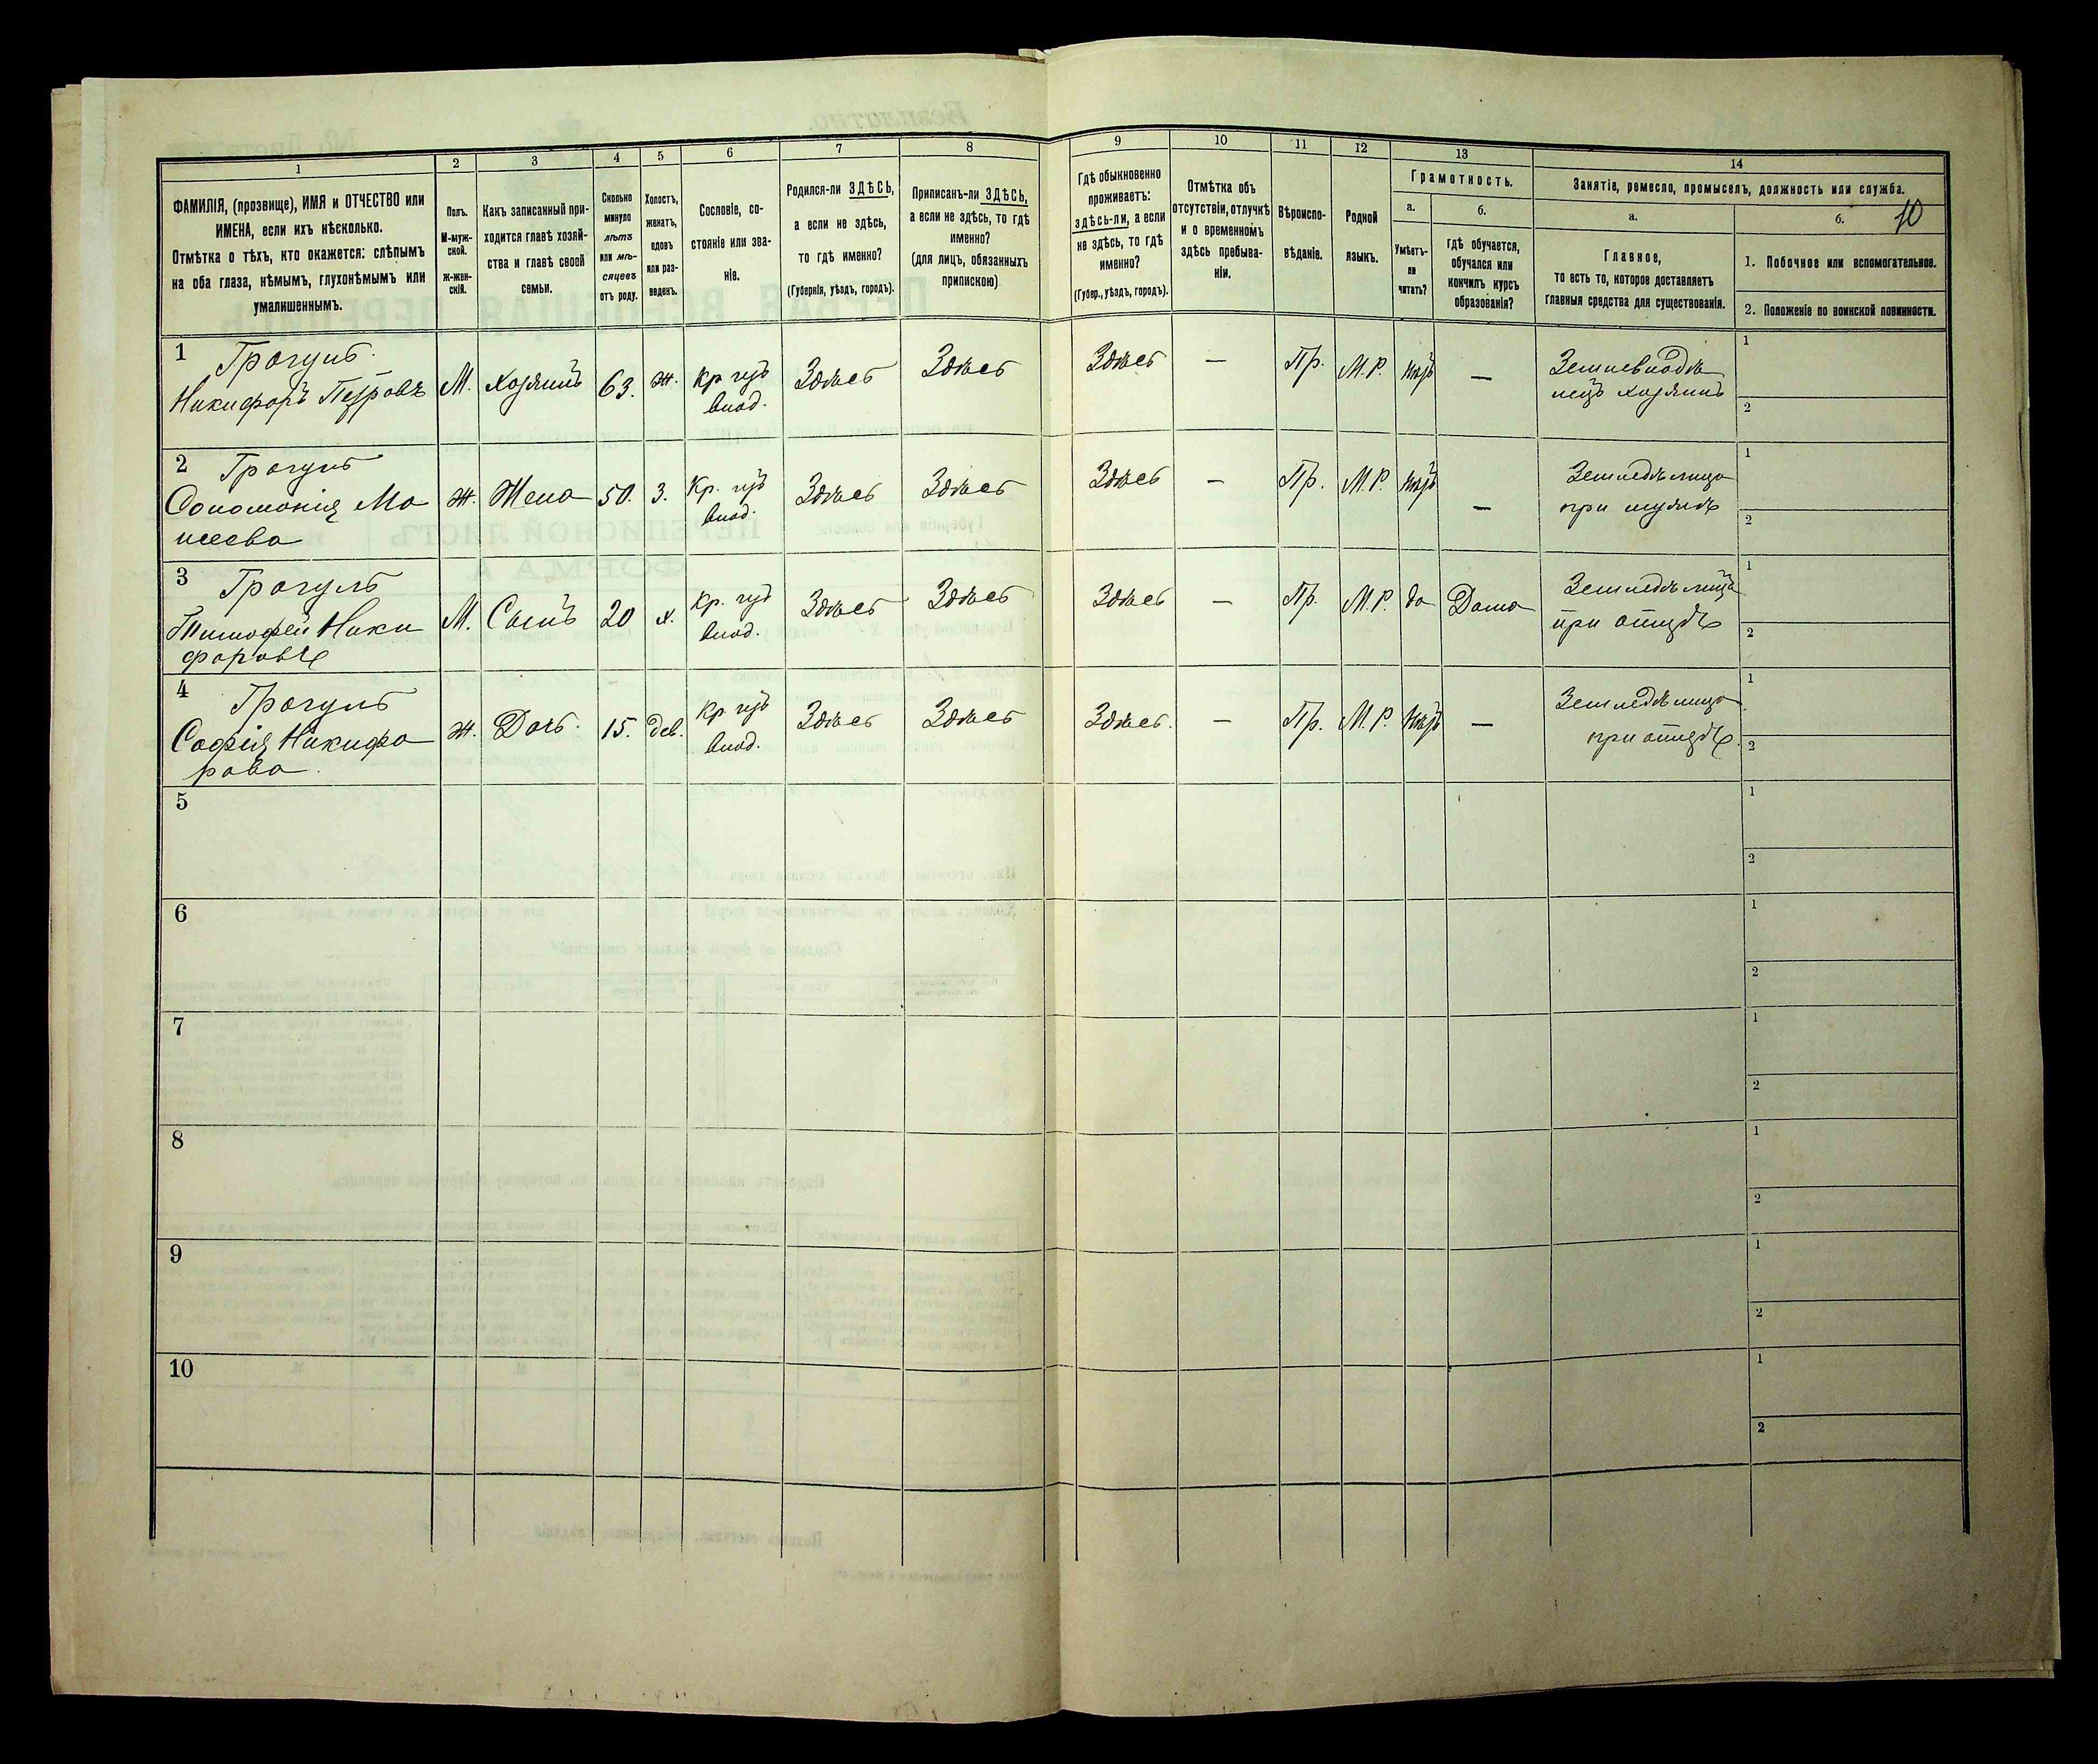 1
2
3
4
5
6
7
8
9
10
11
12
13
14
ФАМИЛІЯ, (прозвище), ИМЯ и ОТЧЕСТВО или
ИМЕНА, если ихъ нѣсколько.
Отмѣтка о тѣхъ, кто окажется: слѣпымъ
на оба глаза, нѣмымъ, глухонѣмымъ или
умалишеннымъ.
Полъ.
М-муж-
ской.
Ж-жен-
скій.
Какъ записанный при-
ходится главѣ хозяй-
ства и главѣ своей
семьи.
Сколько
минуло
лѣтъ
или мѣ-
сяцевъ
отъ роду.
Холостъ,
женатъ,
вдовъ
или раз-
веденъ.
Сословіе, со-
стояніе или зва-
ніе.
Родился-ли ЗДѢСЬ,
а если не здѣсь,
то гдѣ именно?
(Губернія, уѣздъ, городъ).
Приписанъ-ли ЗДѢСЬ,
а если не здѣсь, то гдѣ
именно?
(для лицъ, обязанныхъ
припискою)
Гдѣ обыкновенно
проживаетъ:
здѣсь-ли, а если
не здѣсь, то гдѣ
именно?
(Губер., уѣздъ, городъ).
Отмѣтка объ
отсутствіи, отлучкѣ
и о временномъ
здѣсь пребыва-
ніи.
Вѣроиспо-
вѣданіе.
Родной
языкъ.
Грамотность.
а.
Умѣетъ-
ли
читать?
б.
гдѣ обучается,
обучался или
кончилъ курсъ
образованія?
Занятіе, ремесло, промыселъ, должность или служба.
а.
Главное,
то есть то, которое доставляетъ
главныя средства для существованія.
б.
10
1. Побочное или вспомогательное.
2. Положеніе по воинской повинности.
1 Грогуль
Никифоръ Петровъ
М. Хозяинъ 63. ж. Кр.
влад.
Здѣсь Здѣсь Здѣсь — Пр. М.Р. нѣтъ —
хозяинъ
1
2
2 Грогуль
Соломонія Мо
исеева
ж. Жена 50. З. Кр.
влад.
Здѣсь Здѣсь Здѣсь — Пр. М.Р. нѣтъ —
Земледѣлица
при мужѣ
1
2
3 Грогуль
Тимофей Ники
форовъ
М. Сынъ 20 х. Кр.
влад.
Здѣсь Здѣсь Здѣсь — Пр. М.Р. да Дома
Земледѣлецъ
при отцѣ
1
2
4 Грогуль
Софія Никифо
рова
ж. Дочь 15. дев. Кр.
влад.
Здѣсь Здѣсь Здѣсь. — Пр. М.Р. нѣтъ —
Земледѣлица
при отцѣ.
1
2
5
1
2
6
1
2
7
1
2
8
1
2
9
1
2
10
1
2